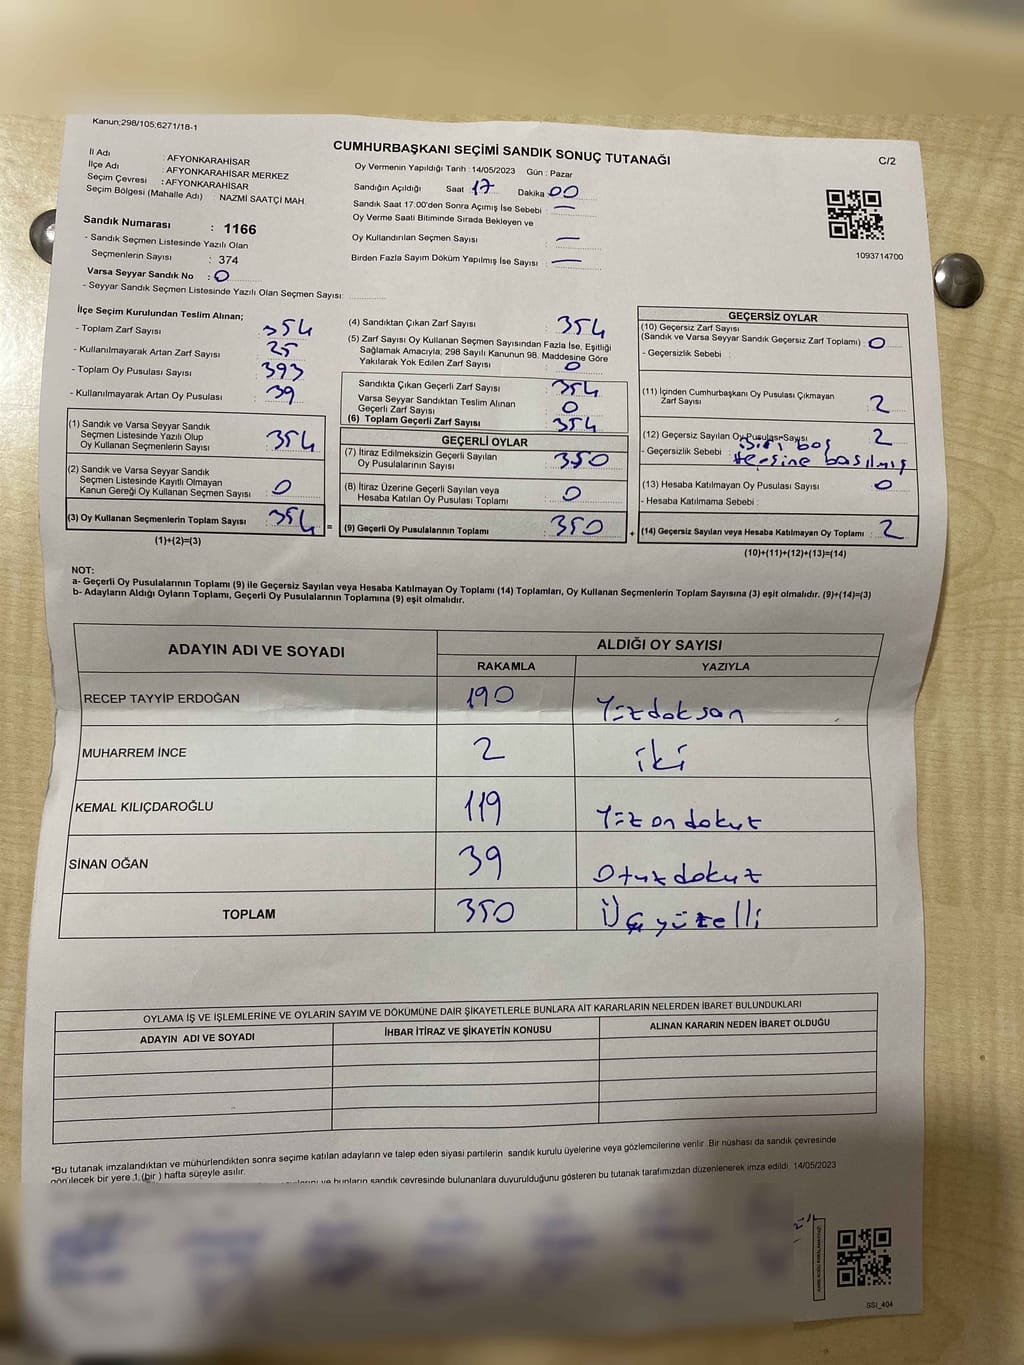 Kanun;298/105;6271/18-1
CUMHURBAŞKANI SEÇİMİ SANDIK SONUÇ TUTANAĞI
C/2
İl Adı : AFYONKARAHİSAR
İlçe Adı : AFYONKARAHİSAR MERKEZ
Seçim Çevresi : AFYONKARAHİSAR
Seçim Bölgesi (Mahalle Adı) NAZMİ SAATÇİ MAH.
Sandık Numarası : 1166
- Sandık Seçmen Listesinde Yazılı Olan
Seçmenlerin Sayısı : 374
Varsa Seyyar Sandık No : 0
- Seyyar Sandık Seçmen Listesinde Yazılı Olan Seçmen Sayısı:
Oy Vermenin Yapıldığı Tarih : 14/05/2023 Gün : Pazar
Sandığın Açıldığı Saat 17 Dakika 00
Sandık Saat 17:00'den Sonra Açımış İse Sebebi : —
Oy Verme Saati Bitiminde Sırada Bekleyen ve
Oy Kullandırılan Seçmen Sayısı : —
Birden Fazla Sayım Döküm Yapılmış İse Sayısı : —
1093714700
İlçe Seçim Kurulundan Teslim Alınan;
- Toplam Zarf Sayısı : 354
- Kullanılmayarak Artan Zarf Sayısı : 25
- Toplam Oy Pusulası Sayısı : 393
- Kullanılmayarak Artan Oy Pusulası : 39
(1) Sandık ve Varsa Seyyar Sandık
Seçmen Listesinde Yazılı Olup
Oy Kullanan Seçmenlerin Sayısı : 354
(2) Sandık ve Varsa Seyyar Sandık
Seçmen Listesinde Kayıtlı Olmayan
Kanun Gereği Oy Kullanan Seçmen Sayısı : 0
(3) Oy Kullanan Seçmenlerin Toplam Sayısı : 354
(1)+(2)=(3)
=
(4) Sandıktan Çıkan Zarf Sayısı : 354
(5) Zarf Sayısı Oy Kullanan Seçmen Sayısından Fazla İse, Eşitliği
Sağlamak Amacıyla; 298 Sayılı Kanunun 98. Maddesine Göre
Yakılarak Yok Edilen Zarf Sayısı : 0
Sandıkta Çıkan Geçerli Zarf Sayısı : 354
Varsa Seyyar Sandıktan Teslim Alınan
Geçerli Zarf Sayısı : 0
(6) Toplam Geçerli Zarf Sayısı : 354
GEÇERLİ OYLAR
(7) İtiraz Edilmeksizin Geçerli Sayılan
Oy Pusulalarının Sayısı : 350
(8) İtiraz Üzerine Geçerli Sayılan veya
Hesaba Katılan Oy Pusulası Toplamı : 0
(9) Geçerli Oy Pusulalarının Toplamı : 350
+
GEÇERSİZ OYLAR
(10) Geçersiz Zarf Sayısı
(Sandık ve Varsa Seyyar Sandık Geçersiz Zarf Toplamı) : 0
- Geçersizlik Sebebi :
(11) İçinden Cumhurbaşkanı Oy Pusulası Çıkmayan
Zarf Sayısı : 2
(12) Geçersiz Sayılan Oy Pusulası Sayısı 2
- Geçersizlik Sebebi : Biri boş
tersine basılmış
(13) Hesaba Katılmayan Oy Pusulası Sayısı : 0
- Hesaba Katılmama Sebebi :
(14) Geçersiz Sayılan veya Hesaba Katılmayan Oy Toplamı : 2
(10)+(11)+(12)+(13)=(14)
NOT:
a- Geçerli Oy Pusulalarının Toplamı (9) ile Geçersiz Sayılan veya Hesaba Katılmayan Oy Toplamı (14) Toplamları, Oy Kullanan Seçmenlerin Toplam Sayısına (3) eşit olmalıdır. (9)+(14)=(3)
b- Adayların Aldığı Oyların Toplamı, Geçerli Oy Pusulalarının Toplamına (9) eşit olmalıdır.
ADAYIN ADI VE SOYADI
ALDIĞI OY SAYISI
RAKAMLA YAZIYLA
RECEP TAYYİP ERDOĞAN 190 Yüzdoksan
MUHARREM İNCE 2 iki
KEMAL KILIÇDAROĞLU 119 Yüzondokuz
SİNAN OĞAN 39 Otuzdokuz
TOPLAM 350 Üçyüzelli
OYLAMA İŞ VE İŞLEMLERİNE VE OYLARIN SAYIM VE DÖKÜMÜNE DAİR ŞİKAYETLERLE BUNLARA AİT KARARLARIN NELERDEN İBARET BULUNDUKLARI
ADAYIN ADI VE SOYADI İHBAR İTİRAZ VE ŞİKAYETİN KONUSU ALINAN KARARIN NEDEN İBARET OLDUĞU
*Bu tutanak imzalandıktan ve mühürlendikten sonra seçime katılan adayların ve talep eden siyasi partilerin sandık kurulu üyelerine veya gözlemcilerine verilir .Bir nüshası da sandık çevresinde
görülecek bir yere 1 (bir ) hafta süreyle asılır.
ve bunların sandık çevresinde bulunanlara duyurulduğunu gösteren bu tutanak tarafımızdan düzenlenerek imza edildi. 14/05/2023
SSI_404